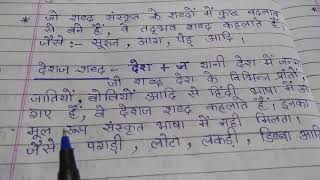 * जो शब्द संस्कृत के शब्दों में कुछ बदलाव
से बने हैं, वे तद्भव शब्द कहलाते हैं।
जैसे:- सूरज, आग, गेहूं आदि।
* देशज शब्द - देश + ज यानी देश में जन्मा
जो शब्द देश के विभिन्न प्रांतों,
जातियों, बोलियों आदि से हिंदी भाषा में आ
गए हैं, वे देशज शब्द कहलाते हैं। इनका
मूल रूप संस्कृत भाषा में नहीं मिलता।
जैसे - पगड़ी, लोटा, लकड़ी, डिब्बा आदि